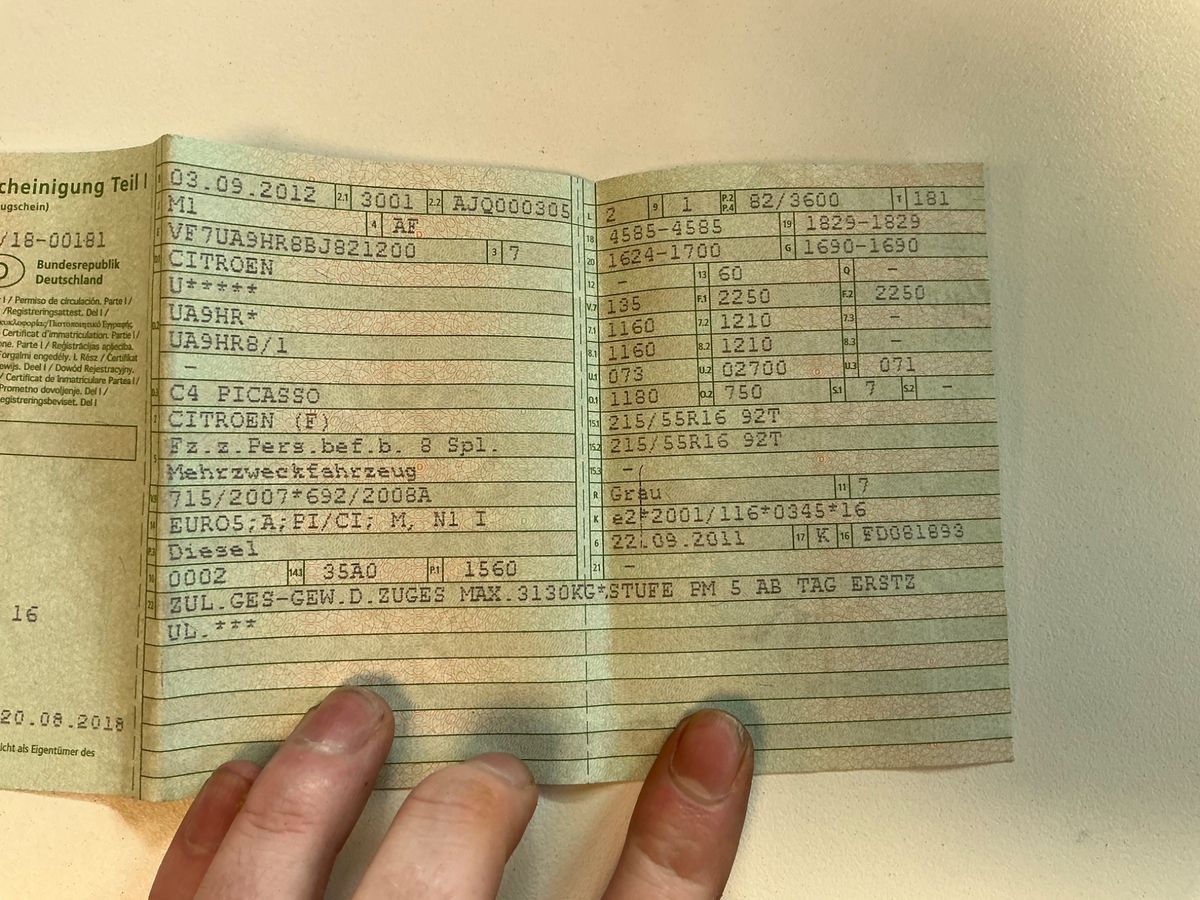 cheinigung Teil I
ugschein)
/18-00181
D
Bundesrepublik
Deutschland
I / Permiso de circulación. Parte I /
/Registreringsattest. Del I /
Certificat d'immatriculation. Partie I /
one. Parte I / Reģistrācijas apliecība.
Forgalmi engedély. I. Rész / Ċertifikat
ewijs. Deel I / Dowód Rejestracyjny.
/ Certificat de înmatriculare Partea I /
Prometno dovoljenje. Del I /
egistreringsbeviset. Del I
16
20.08.2018
icht als Eigentümer des
03.09.2012 2.1 3001 2.2 AJQ000305
M1 4 AF
VF7UA9HR8BJ821200 3 7
CITROEN
U*****
UA9HR*
UA9HR8/1
–
C4 PICASSO
CITROEN (F)
Fz.z.Pers.bef.b. 8 Spl.
Mehrzweckfahrzeug
715/2007*692/2008A
EURO5;A;PI/CI; M, N1 I
Diesel
0002 14.1 35A0 P.1 1560
L 2 9 1 P.2 P.4 82/3600 T 181
18 4585-4585 19 1829-1829
20 1624-1700 G 1690-1690
12 – 13 60 Q –
V.7 135 F.1 2250 F.2 2250
7.1 1160 7.2 1210 7.3 –
8.1 1160 8.2 1210 8.3 –
U.1 073 U.2 02700 U.3 071
O.1 1180 O.2 750 S.1 7 S.2 –
15.1 215/55R16 92T
15.2 215/55R16 92T
15.3 –
R Grau 11 7
K e2*2001/116*0345*16
6 22.09.2011 17 K 16 FD081893
21 –
22 ZUL.GES-GEW.D.ZUGES MAX.3130KG*,STUFE PM 5 AB TAG ERSTZ
UL.***